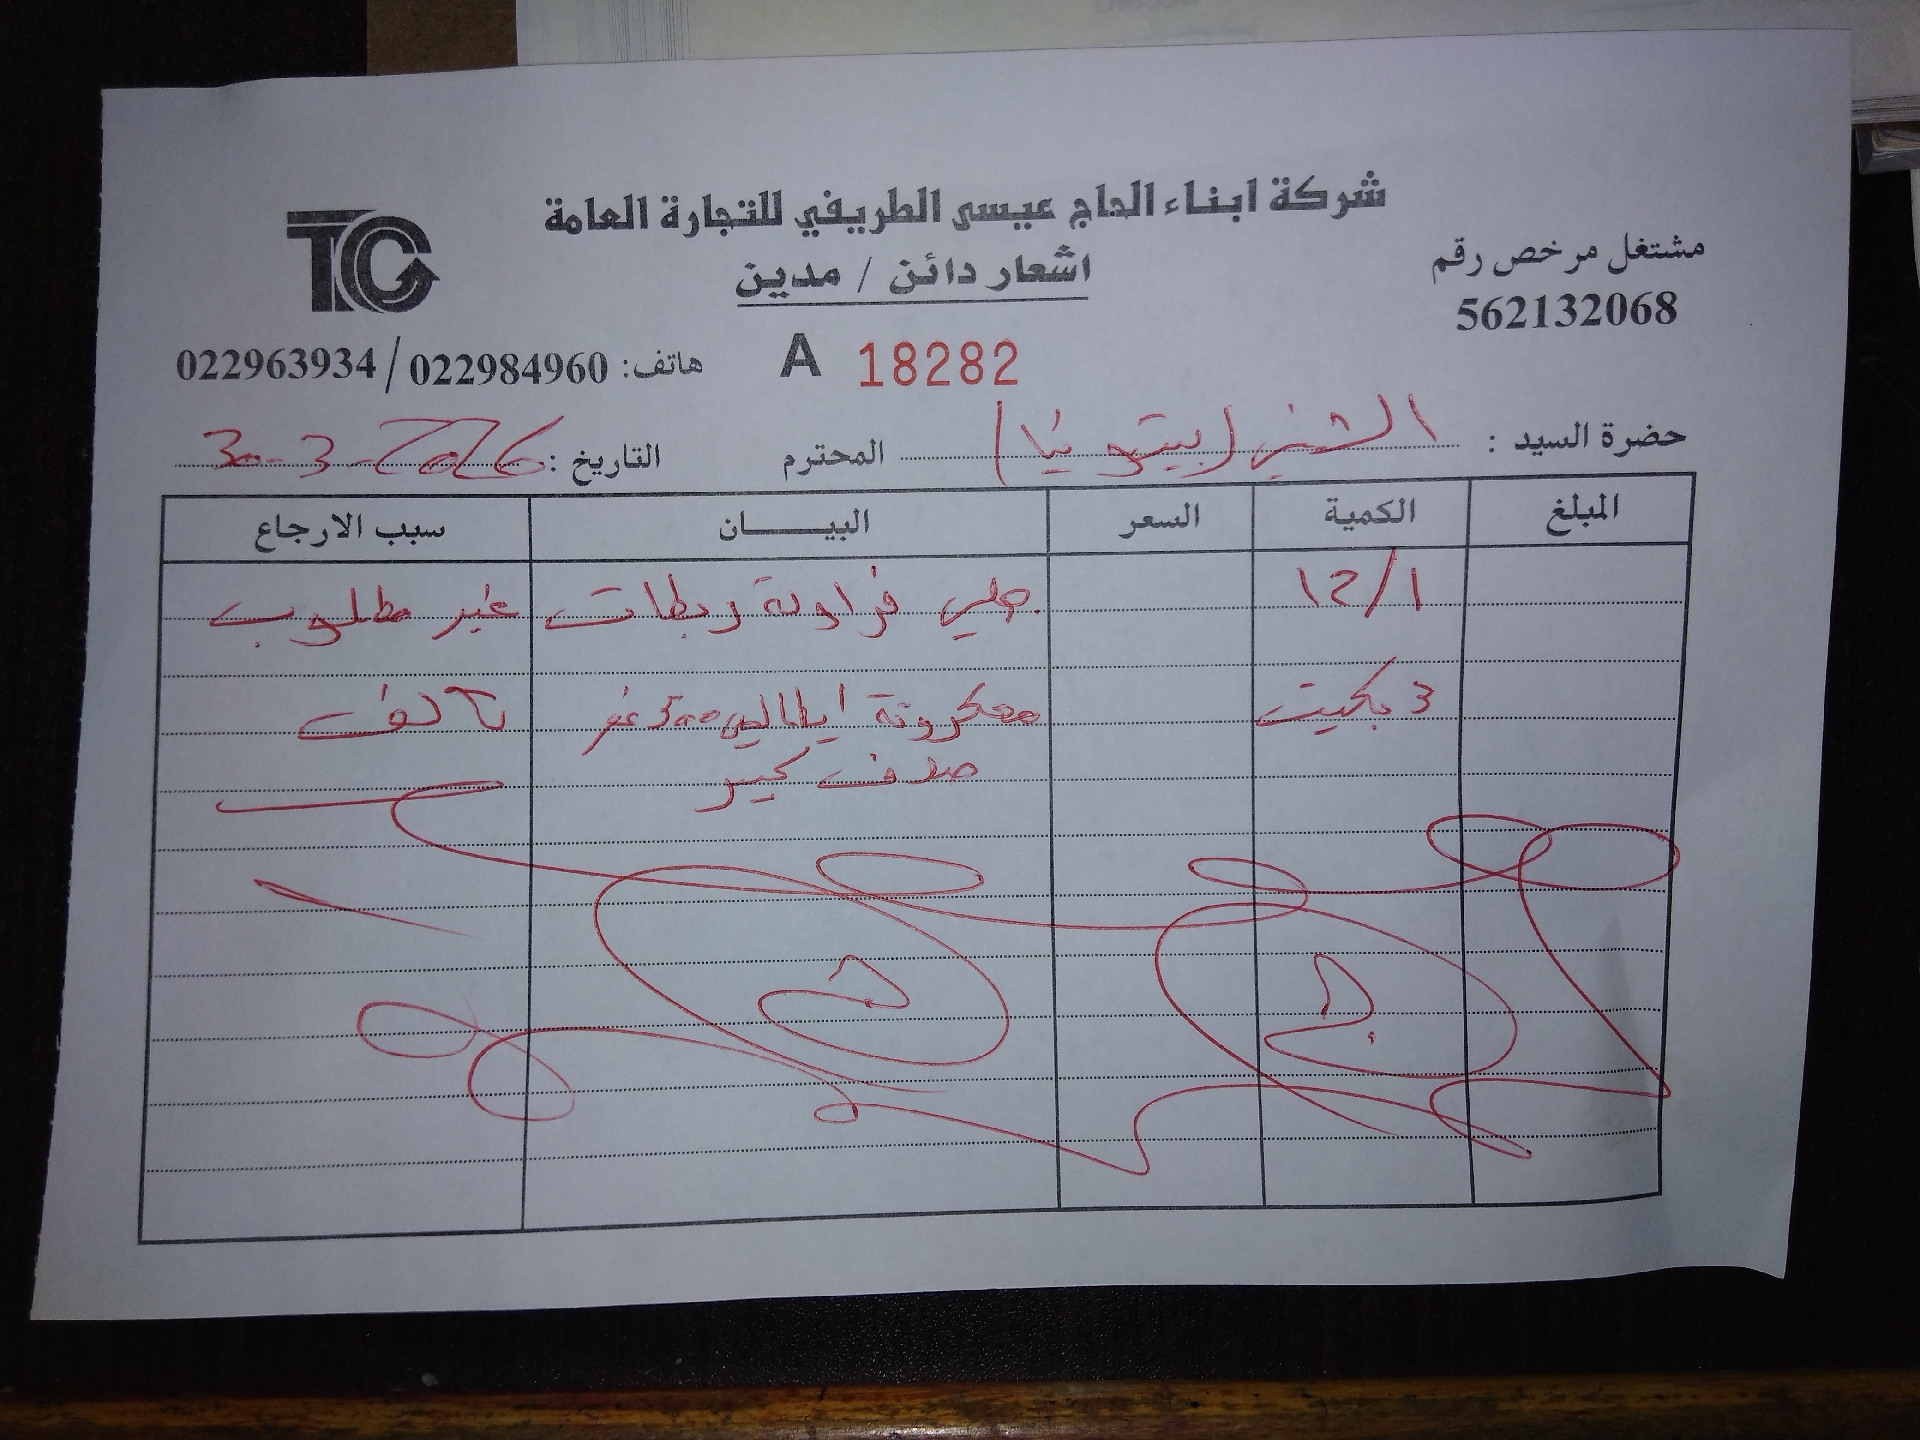 شركة ابناء الحاج عيسى الطريفي للتجارة العامة
TC
اشعار دائن / مدين
مشتغل مرخص رقم
562132068
هاتف: 022984960 / 022963934
A 18282
حضرة السيد : (بيتونيا) المحترم
التاريخ : 30-3-2026
المبلغ الكمية السعر البيــــــان سبب الارجاع
12/1 جلي فراولة ربطات غير مطلوب
3 بكيت معكرونة ايطالي 500 غم تالف
صدف كبير